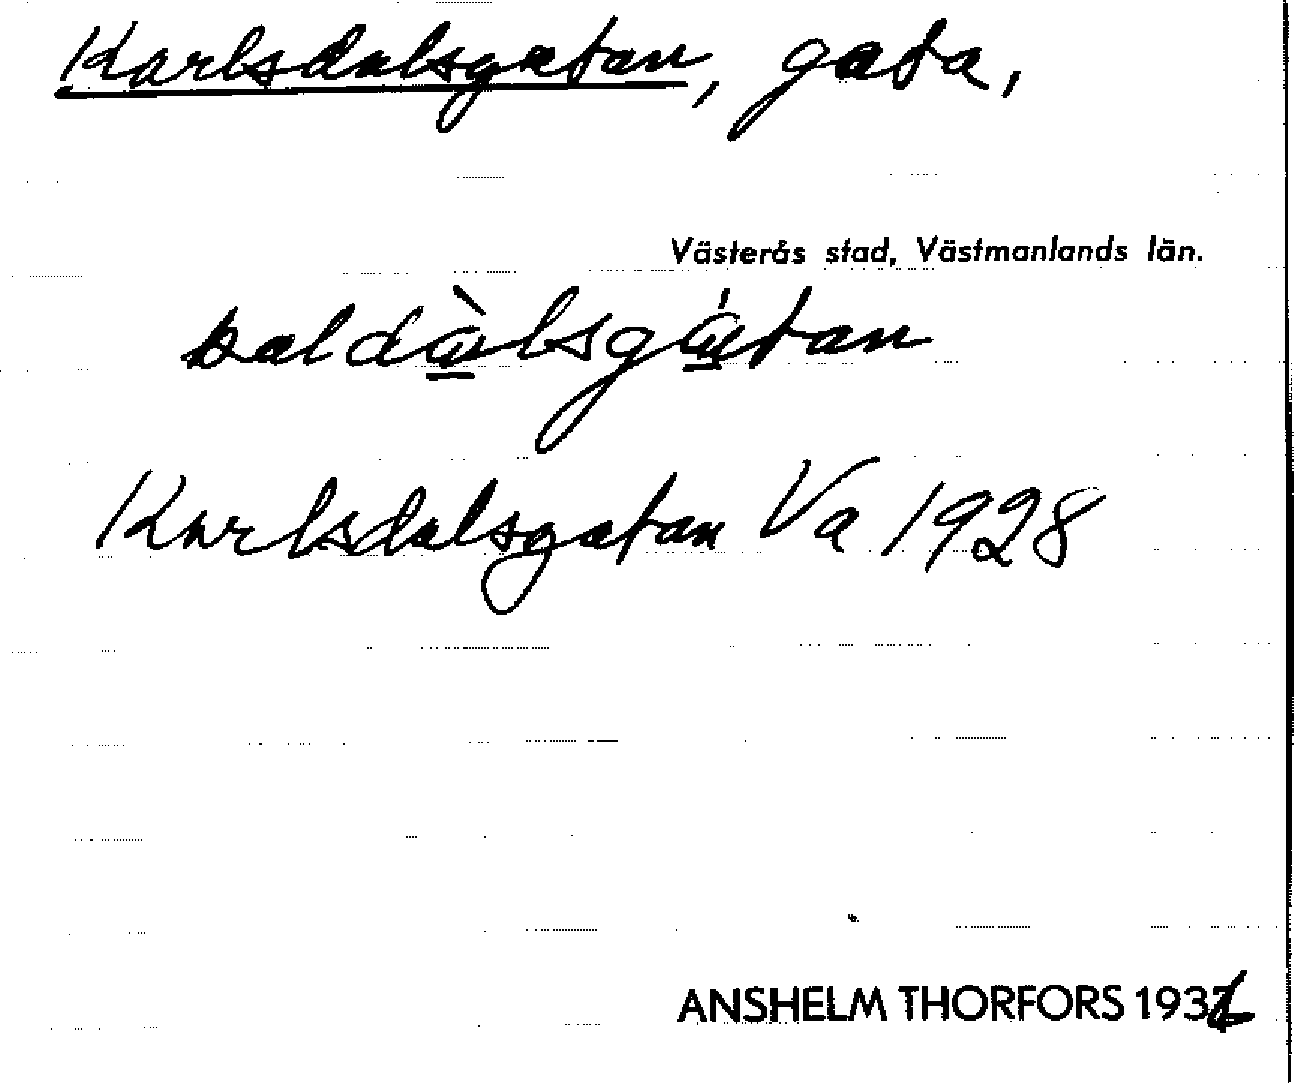 Karlsdalsgatan, gata,
Västerås stad, Västmanlands län.
kaldàlsgátan
Karlsdalsgatan Va 1928
ANSHELM THORFORS 1936